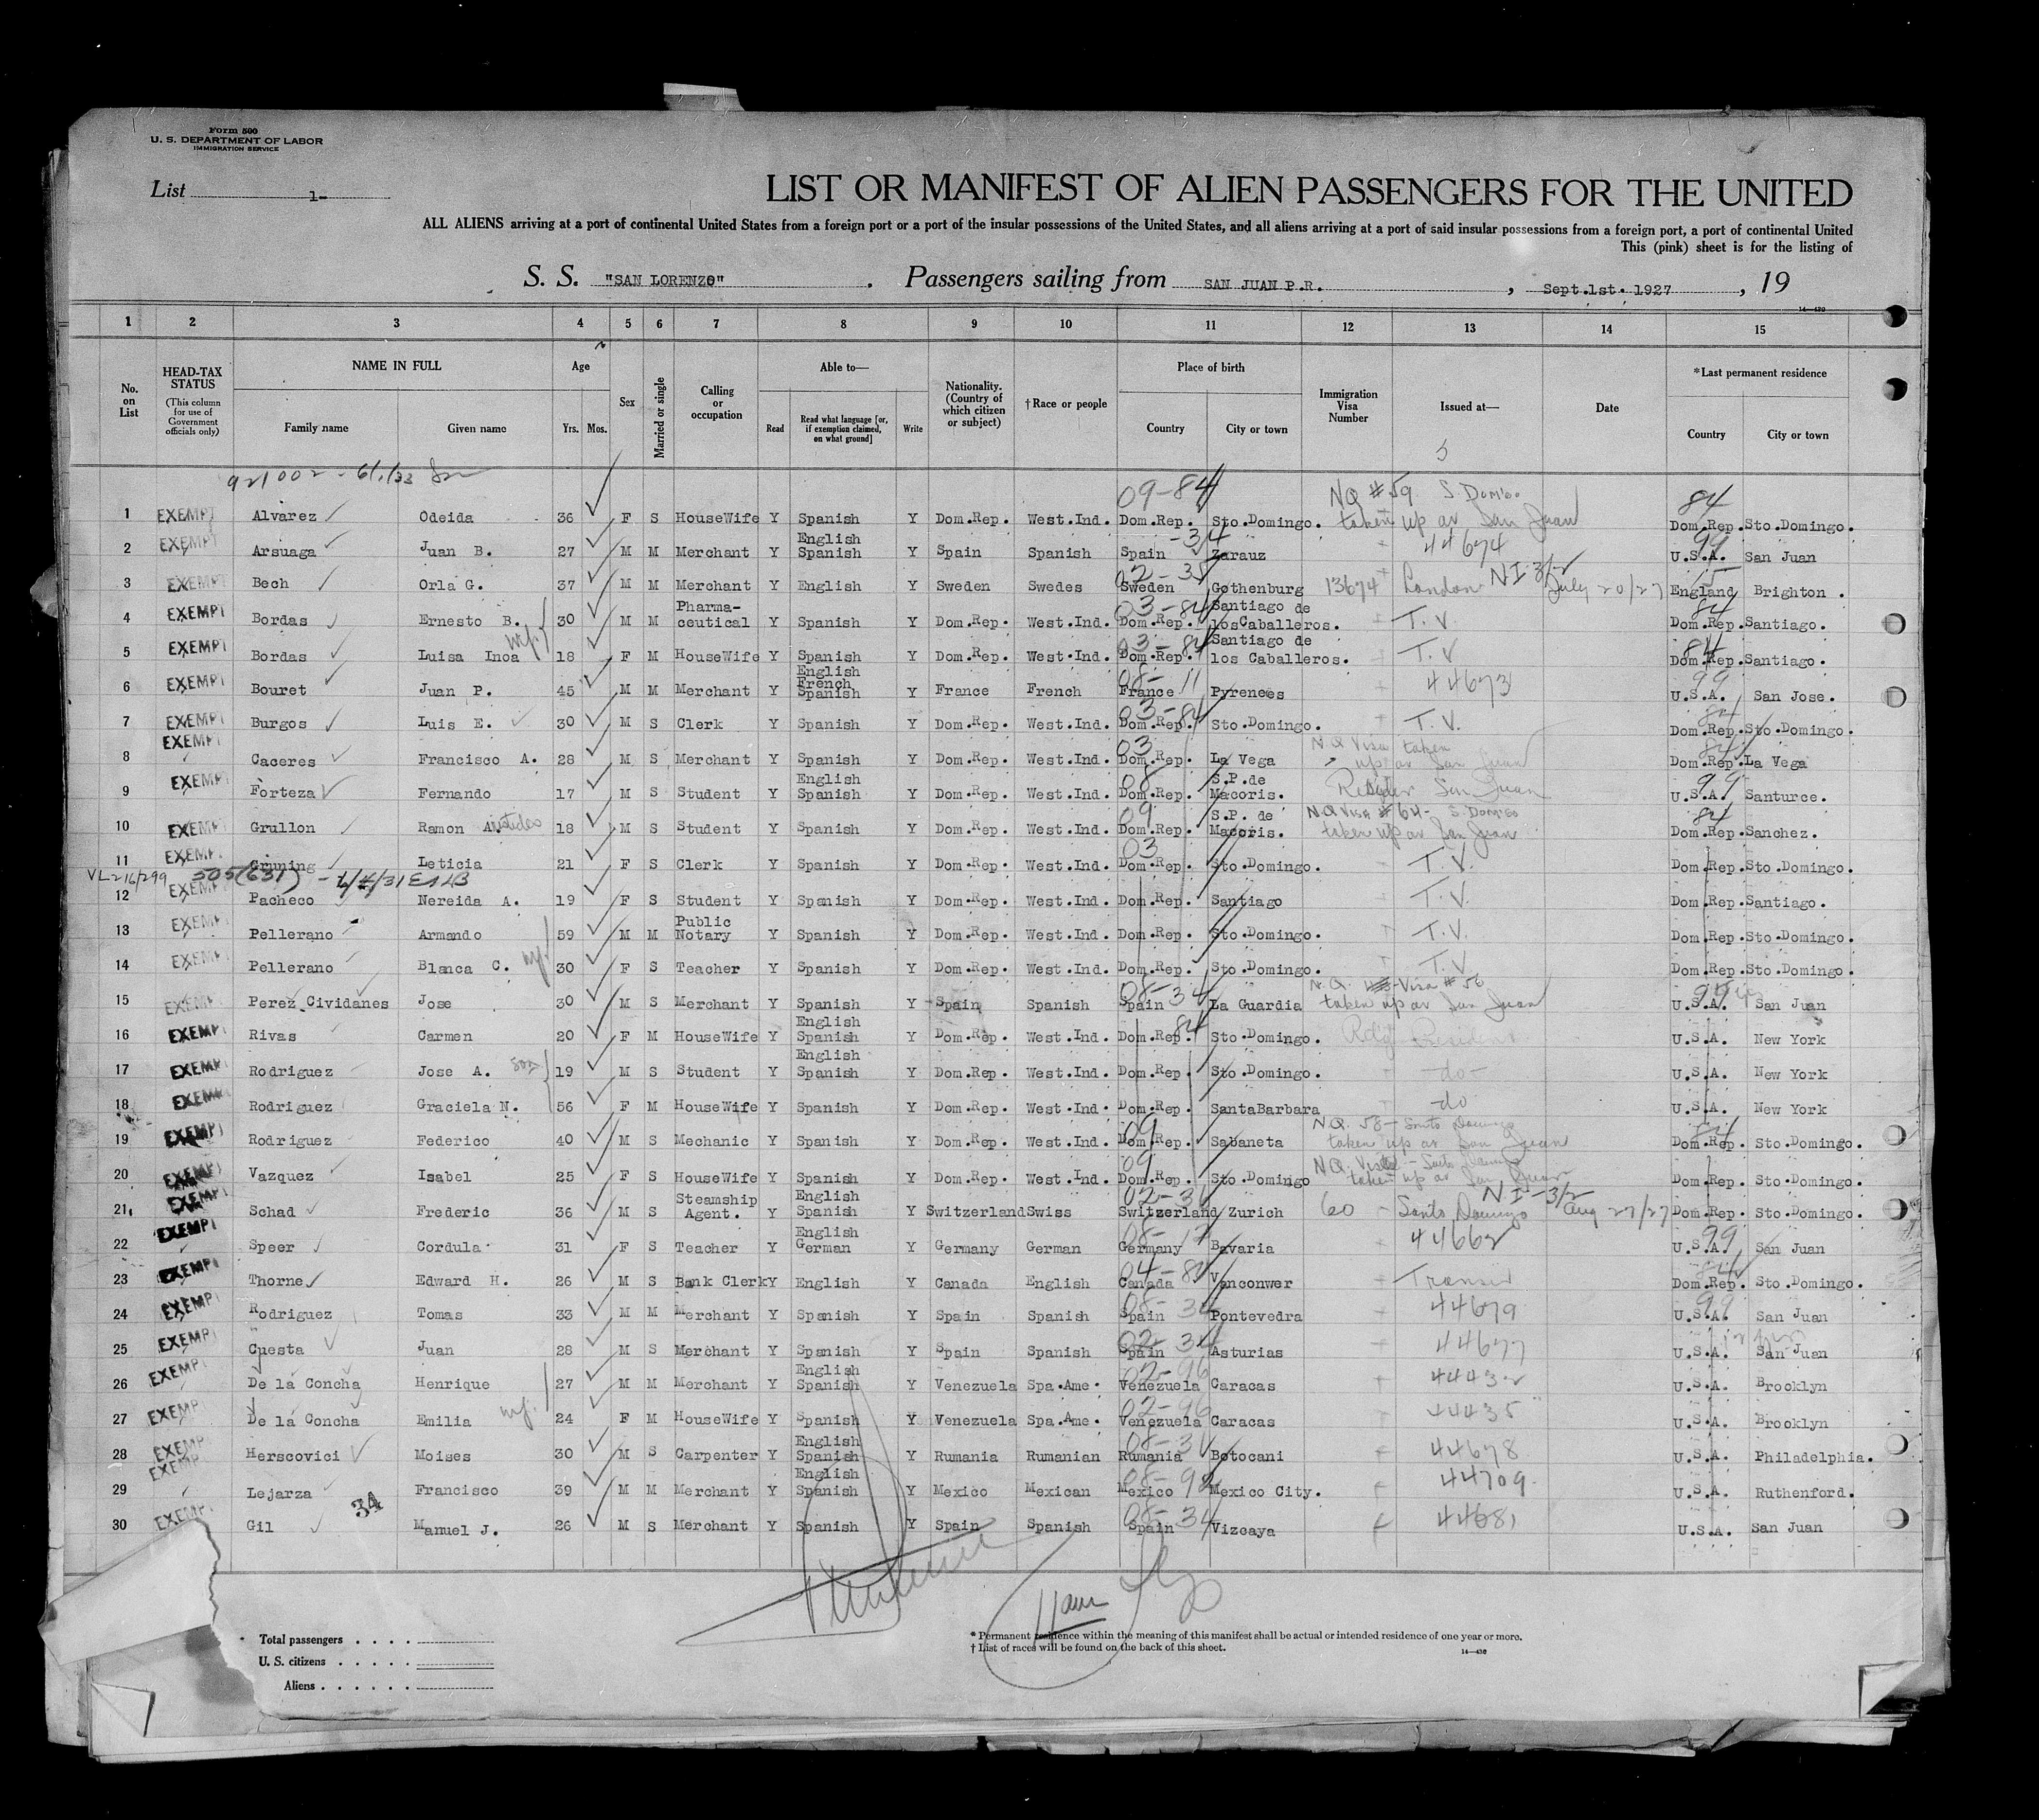 Form 500
U. S. DEPARTMENT OF LABOR
IMMIGRATION SERVICE
List 1-
LIST OR MANIFEST OF ALIEN PASSENGERS FOR THE UNITED
ALL ALIENS arriving at a port of continental United States from a foreign port or a part of the insular possessions of the United States, and all aliens arriving at a port of said insular possessions from a foreign port, a port of continental United
This (pink) sheet is for the listing of
S. S. "SAN LORENZO" . Passengers sailing from SAN JUAN P.R. , Sept.1st. 1927 , 19
14—430
1 2 3 4 5 6 7 8 9 10 11 12 13 14 15
No. on List HEAD-TAX STATUS (This column for use of Government officials only) NAME IN FULL Family name Given name Age Yrs. Mos. Sex Married or single Calling or occupation Able to— Read Read what language [or, if exemption claimed, on what ground] Write Nationality. (Country of which citizen or subject) †Race or people Place of birth Country City or town Immigration Visa Number Issued at— Date *Last permanent residence Country City or town
921002 - 6/1/33
1 EXEMPT Alvarez Odeida 36 F S HouseWife Y Spanish Y Dom.Rep. West.Ind. 09-84 Dom.Rep. Sto.Domingo. NQ #59 S. Dom'go taken up at San Juan 84 Dom.Rep. Sto.Domingo.
2 EXEMPT Arsuaga Juan B. 27 M M Merchant Y English Spanish Y Spain Spanish -34 Spain Zarauz 44674 99 U.S.A. San Juan
3 EXEMPT Bech Orla G. 37 M M Merchant Y English Y Sweden Swedes 02-35 Sweden Gothenburg 13674 London NI-3/2 July 20/27 15 England Brighton .
4 EXEMPT Bordas Ernesto B. 30 M M Pharma- ceutical Y Spanish Y Dom.Rep. West.Ind. 03-84 Dom.Rep. Santiago de losCaballeros. T.V. 84 Dom.Rep. Santiago.
5 EXEMPT Bordas Luisa Inoa wf. 18 F M HouseWife Y Spanish Y Dom.Rep. West.Ind. 03-84 Dom.Rep. Santiago de los Caballeros. T.V 84 Dom.Rep. Santiago.
6 EXEMPT Bouret Juan P. 45 M M Merchant Y English French Spanish Y France French 08-11 France Pyrenees 44673 99 U.S.A. San Jose.
7 EXEMPT Burgos Luis E. 30 M S Clerk Y Spanish Y Dom.Rep. West.Ind. 03-84 Dom.Rep. Sto.Domingo. T.V. 84 Dom.Rep. Sto.Domingo.
8 EXEMPT Caceres Francisco A. 28 M S Merchant Y Spanish Y Dom.Rep. West.Ind. 03 Dom.Rep. La Vega NQ Visa taken up at San Juan 84 Dom.Rep. La Vega
9 EXEMPT Forteza Fernando 17 M S Student Y English Spanish Y Dom.Rep. West.Ind. 08 Dom.Rep. S.P.de Macoris. San Juan 99 U.S.A. Santurce.
10 EXEMPT Grullon Ramon A. 18 M S Student Y Spanish Y Dom.Rep. West.Ind. 09 Dom.Rep. S.P. de Macoris. NQ Visa #64- S. Dom'go taken up at San Juan 84 Dom.Rep. Sanchez.
11 EXEMPT Gruning Leticia 21 F S Clerk Y Spanish Y Dom.Rep. West.Ind. 03 Dom.Rep. Sto.Domingo. T.V. Dom.Rep. Sto.Domingo.
VL216/299 505(631)
12 EXEMPT Pacheco Nereida A. 19 F S Student Y Spanish Y Dom.Rep. West.Ind. Dom.Rep. Santiago T.V. Dom.Rep. Santiago.
13 EXEMPT Pellerano Armando 59 M M Public Notary Y Spanish Y Dom.Rep. West.Ind. Dom.Rep. Sto.Domingo. T.V. Dom.Rep. Sto.Domingo.
14 EXEMPT Pellerano Blanca C. wf 30 F S Teacher Y Spanish Y Dom.Rep. West.Ind. Dom.Rep. Sto.Domingo. T.V Dom.Rep. Sto.Domingo.
15 EXEMPT Perez Cividanes Jose 30 M S Merchant Y Spanish Y Spain Spanish 08-34 Spain La Guardia N.Q. Visa #56 taken up at San Juan 99 U.S.A. San Juan
16 EXEMPT Rivas Carmen 20 F M HouseWife Y English Spanish Y Dom.Rep. West.Ind. 84 Dom.Rep. Sto.Domingo. U.S.A. New York
17 EXEMPT Rodriguez Jose A. son 19 M S Student Y English Spanish Y Dom.Rep. West.Ind. Dom.Rep. Sto.Domingo. -do- U.S.A. New York
18 EXEMPT Rodriguez Graciela N. 56 F M HouseWife Y Spanish Y Dom.Rep. West.Ind. Dom.Rep. SantaBarbara -do U.S.A. New York
19 EXEMPT Rodriguez Federico 40 M S Mechanic Y Spanish Y Dom.Rep. West.Ind. 09 Dom.Rep. Sabaneta N.Q. 58- Santo Domingo taken up at San Juan 84 Dom.Rep. Sto.Domingo.
20 EXEMPT Vazquez Isabel 25 F S HouseWife Y Spanish Y Dom.Rep. West.Ind. 09 Dom.Rep. Sto.Domingo N.Q. Santo Domingo taken up at San Juan Dom.Rep. Sto.Domingo.
21. EXEMPT Schad Frederic 36 M S Steamship Agent. Y English Spanish Y Switzerland Swiss 02-36 Switzerland Zurich 60 - Santo Domingo NI-3/2 Aug 27/27 Dom.Rep. Sto.Domingo.
22 EXEMPT Speer Cordula 31 F S Teacher Y English German Y Germany German 08-17 Germany Bavaria 44662 99 U.S.A. San Juan
23 EXEMPT Thorne Edward H. 26 M S Bank Clerk Y English Y Canada English 04-8 Canada Vanconwer Transit 84 Dom.Rep. Sto.Domingo.
24 EXEMPT Rodriguez Tomas 33 M M Merchant Y Spanish Y Spain Spanish 08-34 Spain Pontevedra 44679 99 U.S.A. San Juan
25 EXEMPT Cuesta Juan 28 M S Merchant Y Spanish Y Spain Spanish 02-34 Spain Asturias 44677 U.S.A. San Juan
26 EXEMPT De la Concha Henrique 27 M M Merchant Y English Spanish Y Venezuela Spa.Ame. 02-96 Venezuela Caracas 44432 U.S.A. Brooklyn
27 EXEMPT De la Concha Emilia wf. 24 F M HouseWife Y Spanish Y Venezuela Spa.Ame. 02-96 Venezuela Caracas 44435 U.S.A. Brooklyn
28 EXEMPT Herscovici Moises 30 M S Carpenter Y English Spanish Y Rumania Rumanian 08-31 Rumania Botocani 44678 U.S.A. Philadelphia.
29 EXEMPT Lejarza Francisco 39 M M Merchant Y English Spanish Y Mexico Mexican 08-92 Mexico Mexico City. 44709 U.S.A. Rutherford.
34
30 EXEMPT Gil Manuel J. 26 M S Merchant Y Spanish Y Spain Spanish 08-34 Spain Vizcaya 44681 U.S.A. San Juan
Total passengers . . . .
U. S. citizens . . . . .
Aliens . . . . . .
* Permanent residence within the meaning of this manifest shall be actual or intended residence of one year or more.
† List of races will be found on the back of this sheet.
14—430